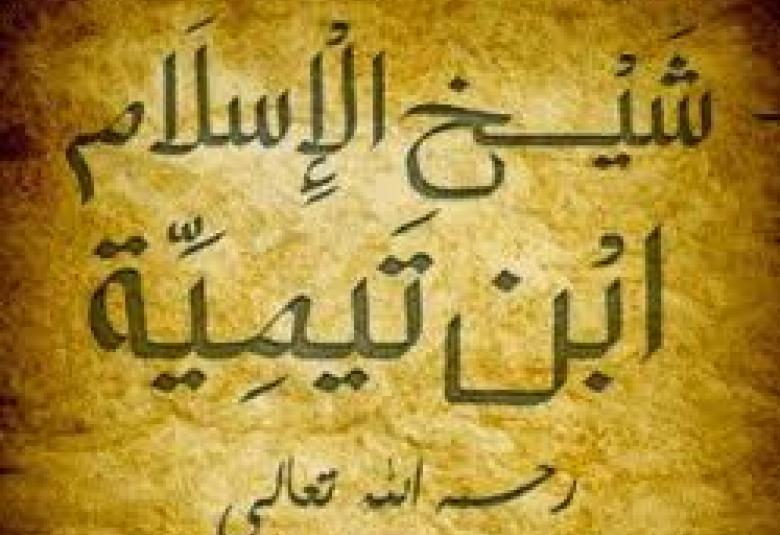 شَيْخ الْإِسلَام
ابْن تَيمِيَّة
رحمه الله تعالى